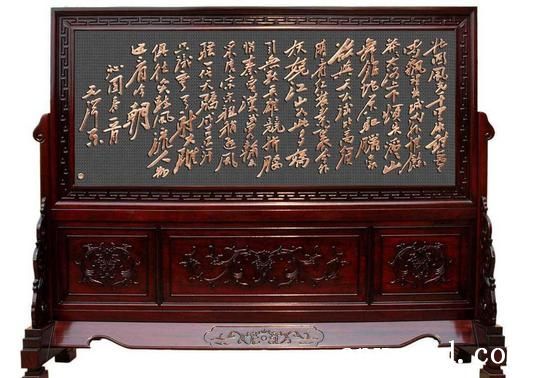 北国风光千里冰封万里
雪飘望长城内外惟馀
莽莽大河上下顿失滔滔山
舞银蛇原驰蜡象欲
与天公试比高须
晴日看红装素裹分外
妖娆江山如此多娇
引无数英雄竞折腰
惜秦皇汉武略输文
采唐宗宋祖稍逊风
骚一代天骄成吉思汗
只识弯弓射大雕
俱往矣数风流人物
还看今朝
沁园春雪
毛泽东